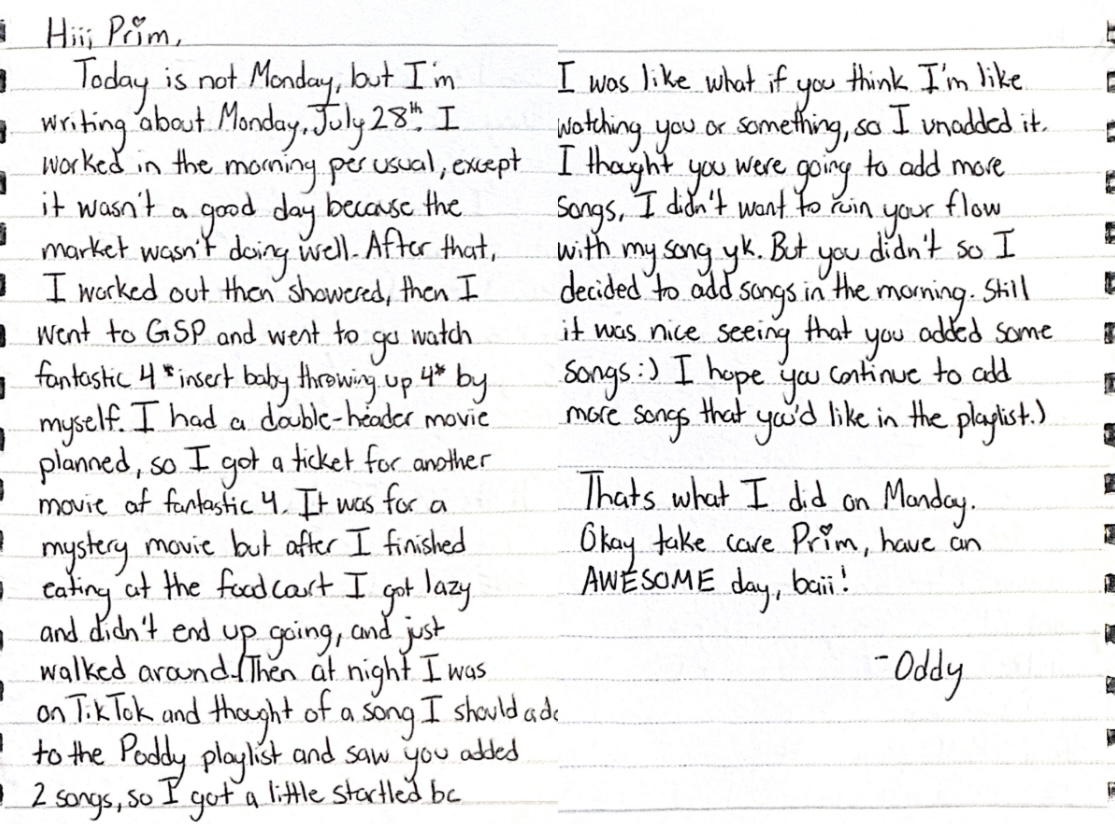 Hiii Prim,
Today is not Monday, but I'm
writing about Monday, July 28th. I
worked in the morning per usual, except
it wasn't a good day because the
market wasn't doing well. After that,
I worked out then showered, then I
went to GSP and went to go watch
fantastic 4 *insert baby throwing up 4* by
myself. I had a double-header movie
planned, so I got a ticket for another
movie at fantastic 4. It was for a
mystery movie but after I finished
eating at the foodcourt I got lazy
and didn't end up going, and just
walked around. (Then at night I was
on TikTok and thought of a song I should add
to the Poddy playlist and saw you added
2 songs, so I got a little startled bc
I was like what if you think I'm like
watching you or something, so I unadded it.
I thought you were going to add more
songs, I didn't want to ruin your flow
with my song yk. But you didn't so I
decided to add songs in the morning. Still
it was nice seeing that you added some
songs :) I hope you continue to add
more songs that you'd like in the playlist.)
Thats what I did on Monday.
Okay take care Prim, have an
AWESOME day, baii!
-Oddy